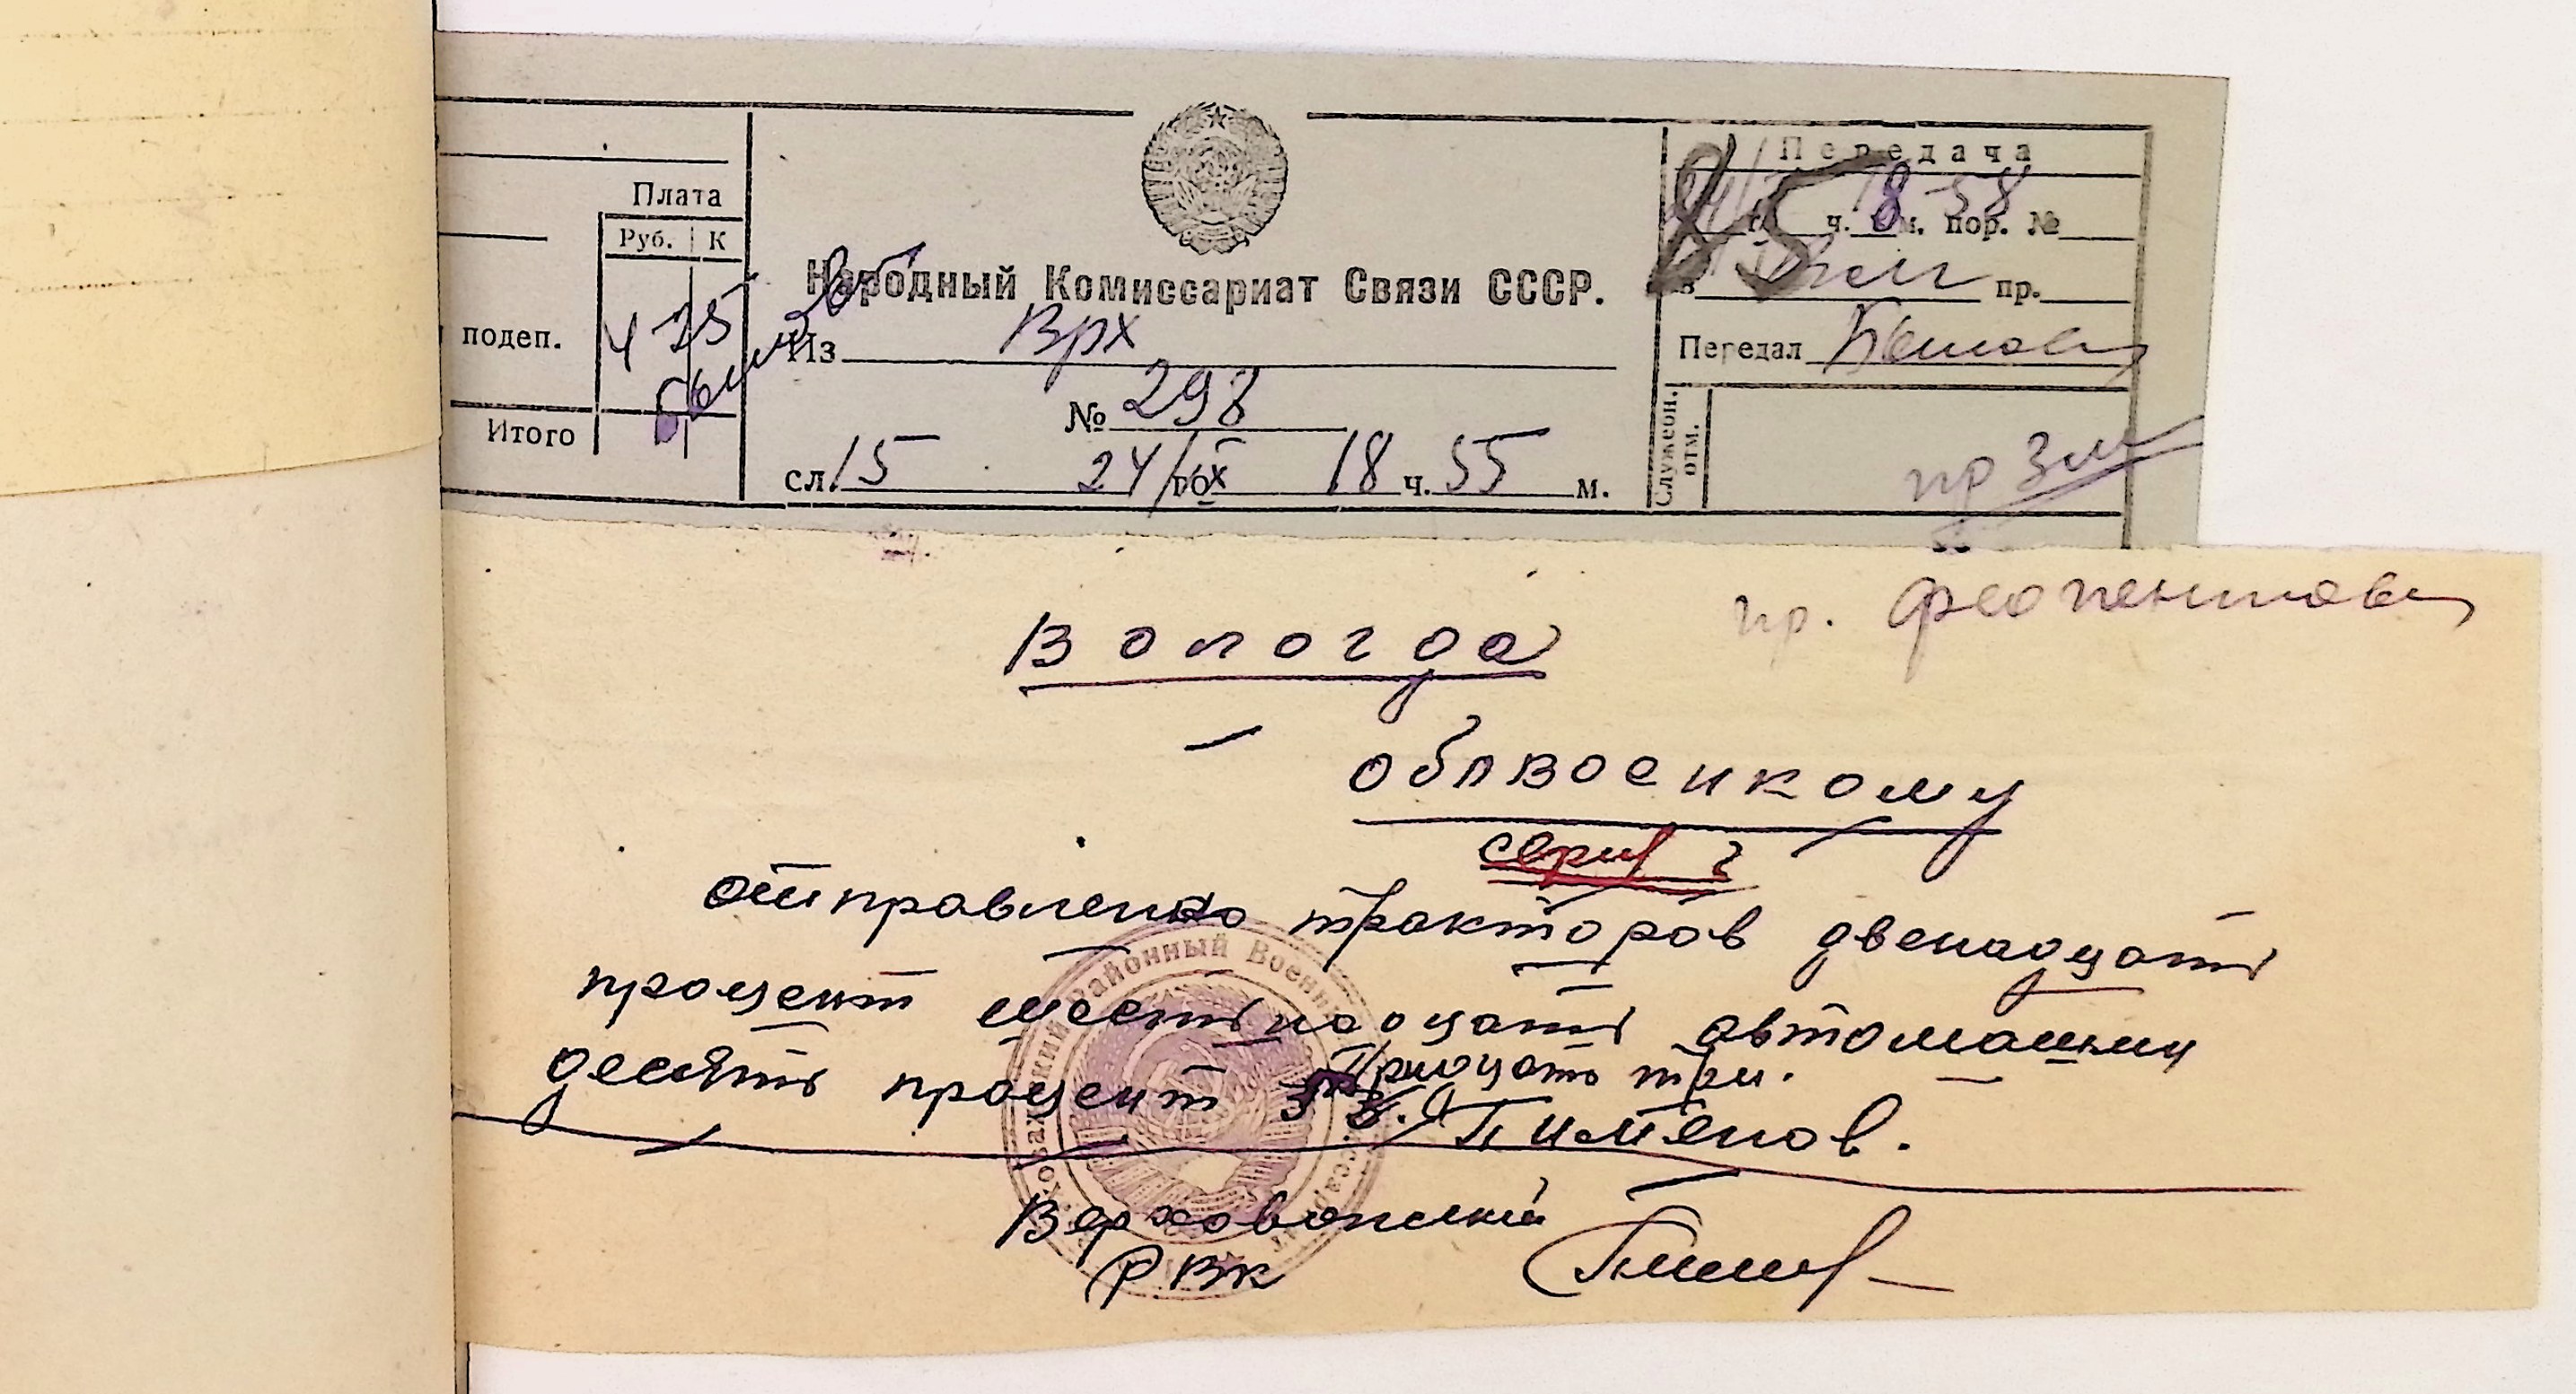 Плата
Руб. К
подеп.
4 25
Итого
Народный Комиссариат Связи СССР.
Из Врх
№ 298
сл. 15 24/IX 18 ч. 55 м.
Передача
85
18-58
ч. м. пор. №
в пр.
Передал
Служебн.
отм.
пр
Вологда
пр.
облвоенкому
серия г
отправлено тракторов двенадцать
процент шестьнадцать автомашин
десять процент тридцать три.
Пименов.
Верховажский
РВК
Районный Военный